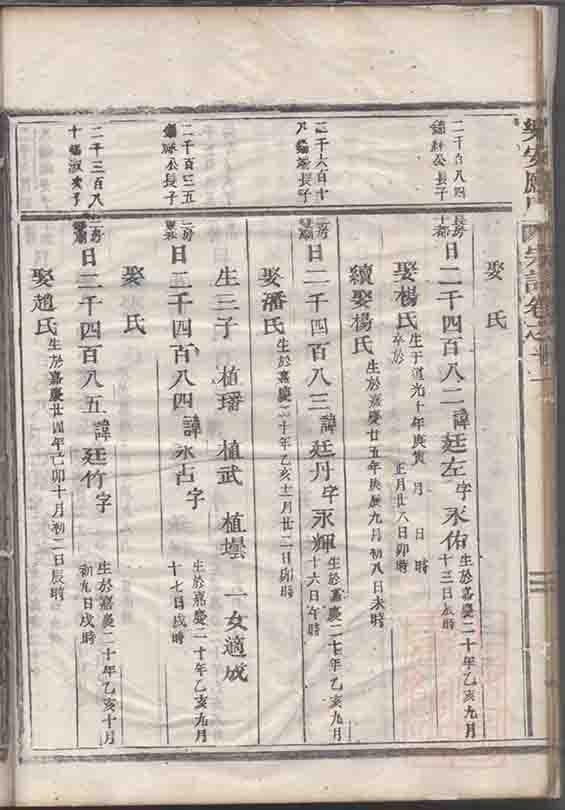 娶 氏
二千百八四
錦林公長子
長房
日二千四百八二 諱廷左 字永佑 生於嘉慶二十年乙亥九月
十三日辰時
娶楊氏 生于道光十年庚寅 月 日 時
卒於 正月廿八日卯時
續娶楊氏 生於嘉慶廿五年庚辰九月初八日未時
二千六百十
長子
日二千四百八三 諱廷丹 字永輝 生於嘉慶二十年乙亥九月
十六日午時
娶潘氏 生於嘉慶二十年乙亥十一月廿二日卯時
生三子 植璠 植武 植壜 一女適成
二千百三五
公長子
二房
日二千四百八四 諱永占 字 生於嘉慶二十年乙亥九月
十七日戌時
娶 氏
二千三百八
十 次子
二房
日二千四百八五 諱廷竹 字 生於嘉慶二十年乙亥十月
初九日戌時
娶趙氏 生於嘉慶廿四年己卯十月初二日辰時